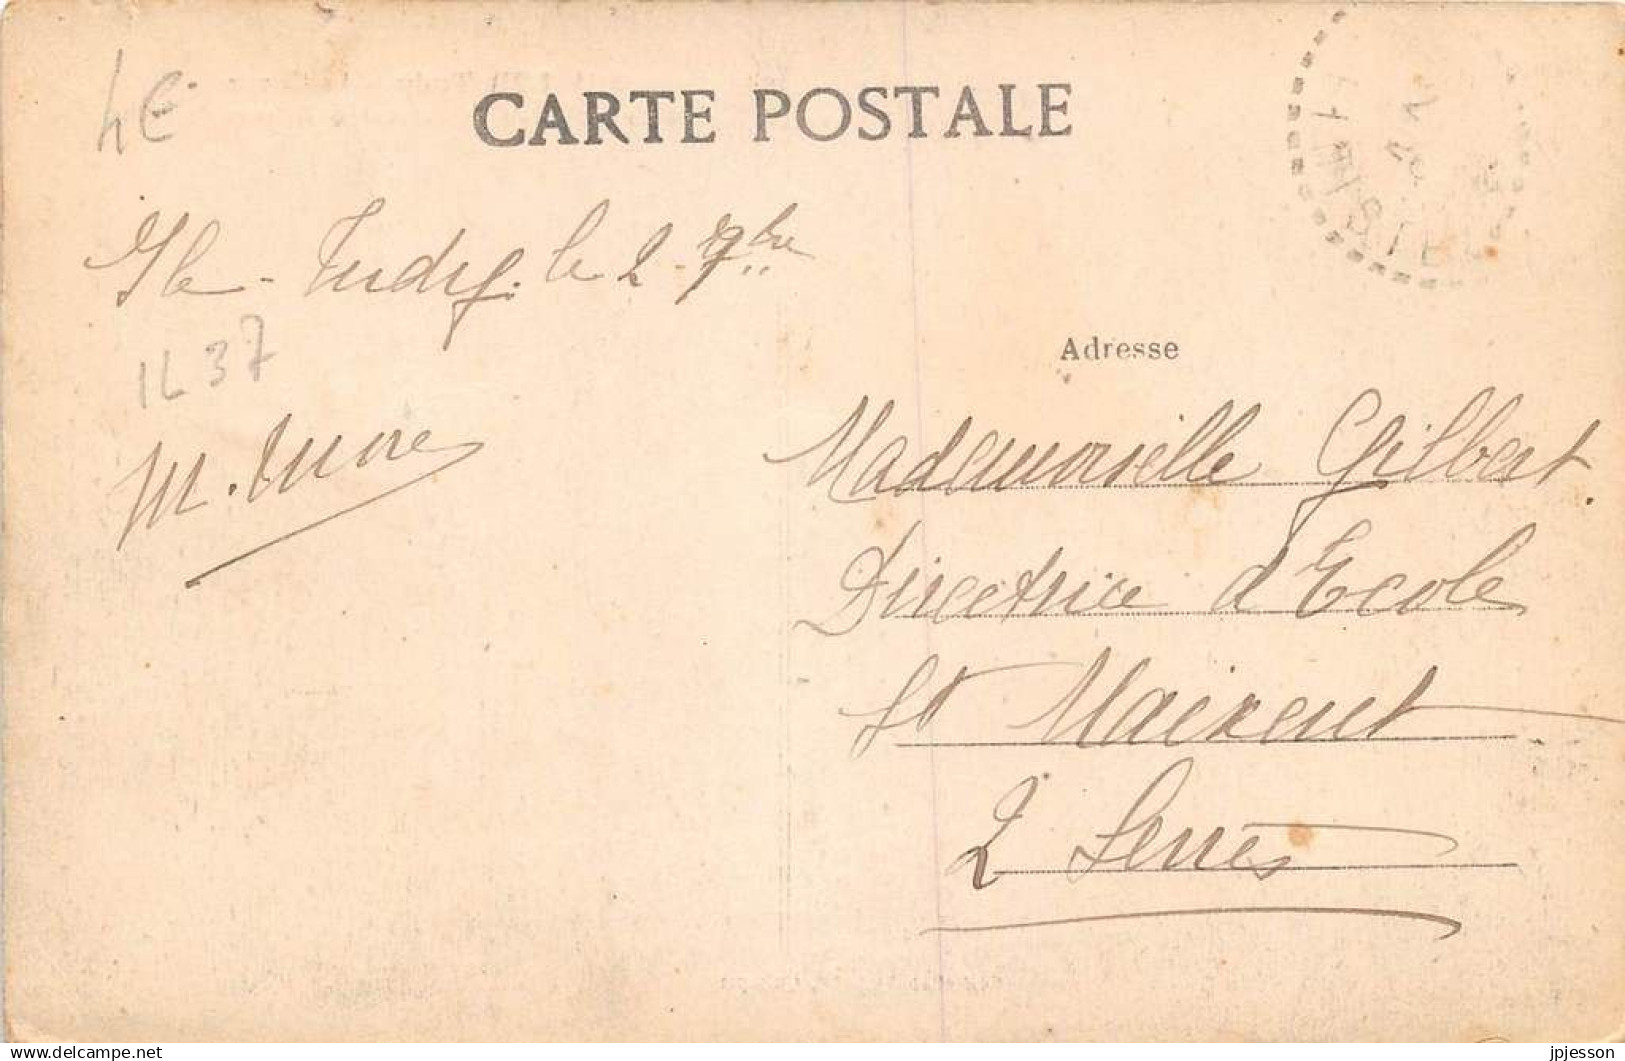 4€
CARTE POSTALE
Ile-Tudy. le 2 7bre
1L37
M.
Adresse
Mademoiselle Gilbert.
Directrice d'Ecole
St Maixent
2 Sevres
Delcampe.net
jpjesson